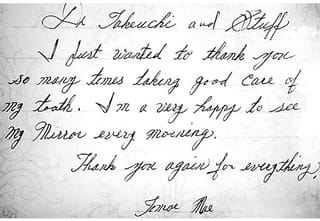 Dr Takeuchi and Stuff
I Just wanted to thank you
so many times taking good care of
my tooth. I'm a very happy to see
my Mirror every morning.
Thank you again for everything,
Tomoe Mae